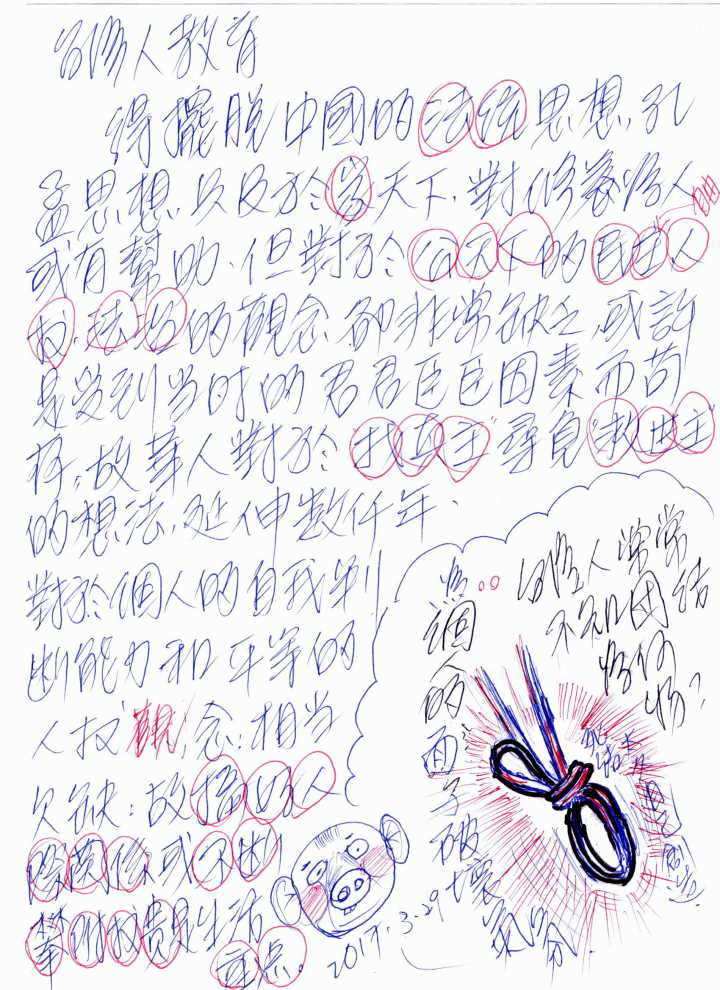 台灣人教育
得擺脫中國的法統思想,孔
孟思想.以及於 天下.對修養 人
自由
或有幫助.但對於公天下的民主人
权.法治的觀念卻非常缺乏.或許
是受到当时的君君臣臣因素而苟
存,故華人對於"找真主"尋覓"救世主"
的想法.延伸数仟年.
對於個人的自我判
斷能力和平等的
人权觀念:相当
欠缺:故搞好人
際關係或不斷
攀附权貴是生活
重点.
2017.3.29
台灣人常常
不知团结
為何
物?
為..
個的面子破壞氣氛.